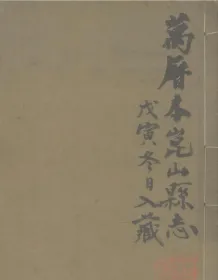 萬曆本崑山縣志
戊寅冬日入藏